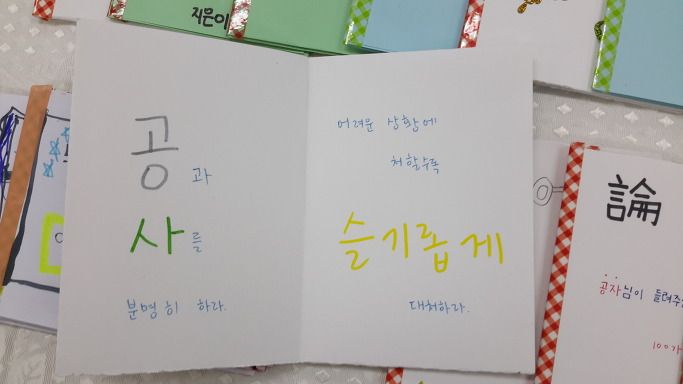 지은이
공과
사를
분명히 하라.
어려운 상황에
처할수록
슬기롭게
대처하라.
論
공자님이 들려주
100가